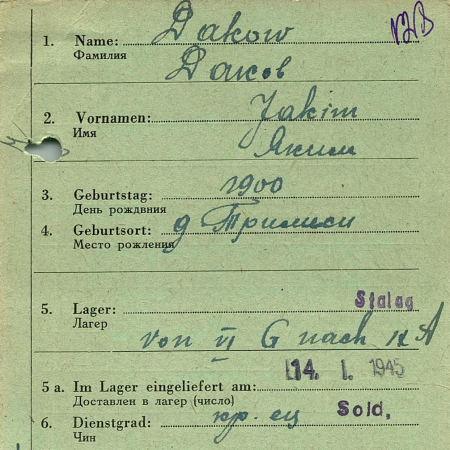 NZB
1. Name: Dakow
Фамилия Даков
2. Vornamen: Jakim
Имя Яким
3. Geburtstag: 1900
День рождвния
4. Geburtsort: д Тримиси
Место рожления
5. Lager: Stalag
Лагер
von VI G nach IX A
14. 1. 1945
5 a. Im Lager eingeliefert am:
Доставлен в лагер (число)
6. Dienstgrad: кр. ец Sold.
Чин